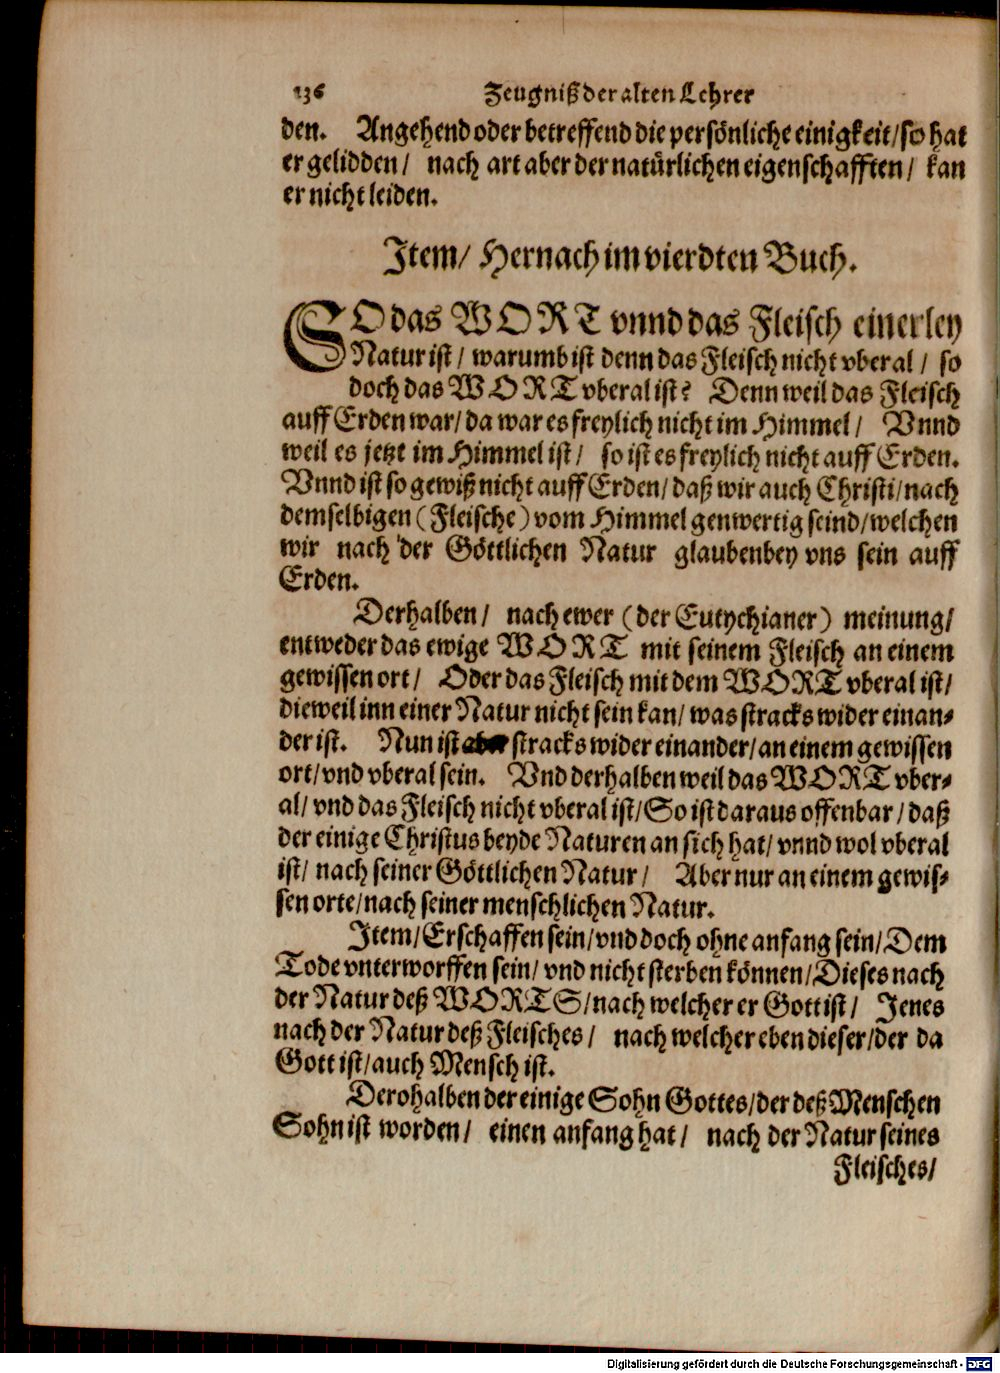 136 Zeugniß der alten Lehrer
den. Angehend oder betreffend die persönliche einigkeit/ so hat
er gelidden/ nach art aber der natürlichen eigenschafften/ kan
er nicht leiden.
Item/ Hernach im vierdten Buch.
SO das WORT vnnd das Fleisch einerley
Natur ist/ warumb ist denn das Fleisch nicht vberal/ so
doch das WORT vberal ist? Denn weil das Fleisch
auff Erden war/ da war es freylich nicht im Himmel/ Vnnd
weil es jetzt im Himmel ist/ so ist es freylich nicht auff Erden.
Vnnd ist so gewiß nicht auff Erden/ daß wir auch Christi/ nach
demselbigen (Fleische) vom Himmel genwertig seind/ welchen
wir nach der Göttlichen Natur glauben bey vns sein auff
Erden.
Derhalben/ nach ewer (der Eutychianer) meinung/
entweder das ewige WORT mit seinem Fleisch an einem
gewissen ort/ Oder das Fleisch mit dem WORT vberal ist/
dieweil inn einer Natur nicht sein kan/ was stracks wider einan-
der ist. Nun ist aber stracks wider einander/ an einem gewissen
ort/ vnd vberal sein. Vnd derhalben weil das WORT vber-
al/ vnd das Fleisch nicht vberal ist/ So ist daraus offenbar/ daß
der einige Christus beyde Naturen an sich hat/ vnnd wol vberal
ist/ nach seiner Göttlichen Natur/ Aber nur an einem gewis-
sen orte/ nach seiner menschlichen Natur.
Item/ Erschaffen sein/ vnd doch ohne anfang sein/ Dem
Tode vnterworffen sein/ vnd nicht sterben können/ Dieses nach
der Natur deß WORTS/ nach welcher er Gott ist/ Jenes
nach der Natur deß Fleisches/ nach welcher eben dieser/ der da
Gott ist/ auch Mensch ist.
Derohalben der einige Sohn Gottes/ der deß Menschen
Sohn ist worden/ einen anfang hat/ nach der Natur seines
Fleisches/
Digitalisierung gefördert durch die Deutsche Forschungsgemeinschaft - DFG